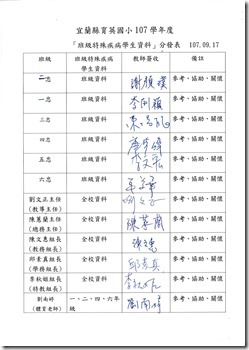 宜蘭縣育英國小 107 學年度
「班級特殊疾病學生資料」分發表 107.09.17
班級 班級特殊疾病學生資料 教師簽收 備註
一忠 班級資料 參考、協助、關懷
二忠 班級資料 參考、協助、關懷
三忠 班級資料 參考、協助、關懷
四忠 班級資料 參考、協助、關懷
五忠 班級資料 參考、協助、關懷
六忠 班級資料 參考、協助、關懷
劉文正主任(教導主任) 全校資料 參考、協助、關懷
陳蕙蘭主任(總務主任) 全校資料 陳蕙蘭 參考、協助、關懷
陳文惠組長(教務組長) 全校資料 參考、協助、關懷
邱素真組長(學務組長) 全校資料 邱素真 參考、協助、關懷
李秋姐組長(特教組長) 全校資料 參考、協助、關懷
劉南婷(體育老師) 一、二、四、六年級 劉南婷 參考、協助、關懷